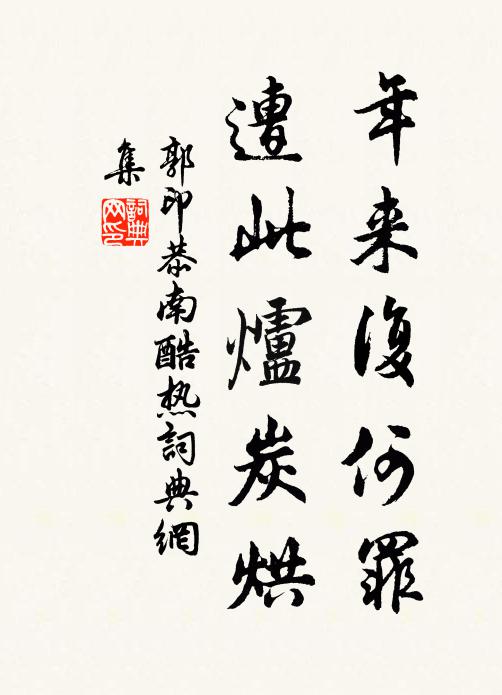 年来復何罪
遭此爐炭烘
郭印恭南酷热詞典網
集
詞典
网印